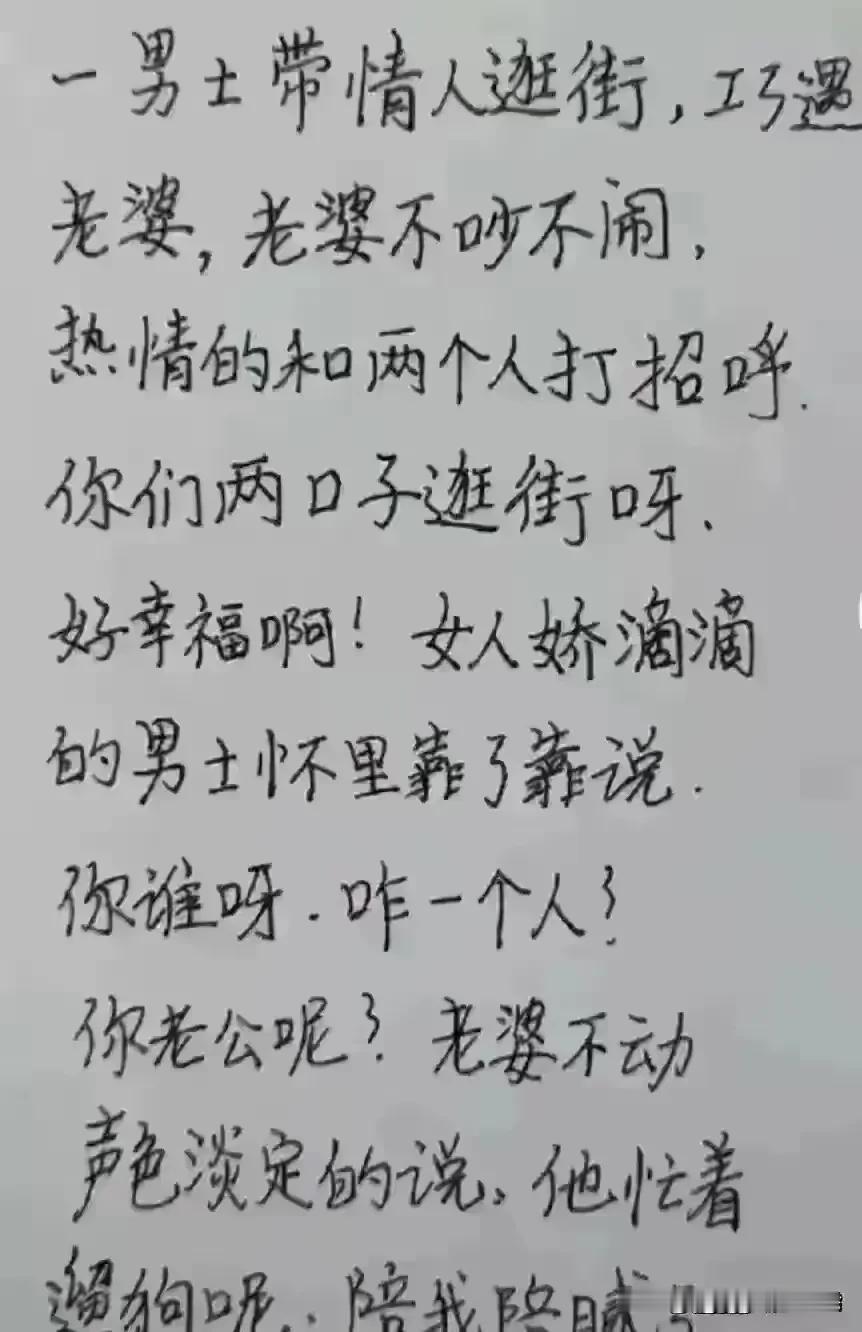 一男士带情人逛街,巧遇
老婆,老婆不吵不闹,
热情的和两个人打招呼.
你们两口子逛街呀.
好幸福啊!女人娇滴滴
的男士怀里靠了靠说.
你谁呀.咋一个人?
你老公呢?老婆不动
声色淡定的说、他忙着
遛狗呢.陪我陪腻